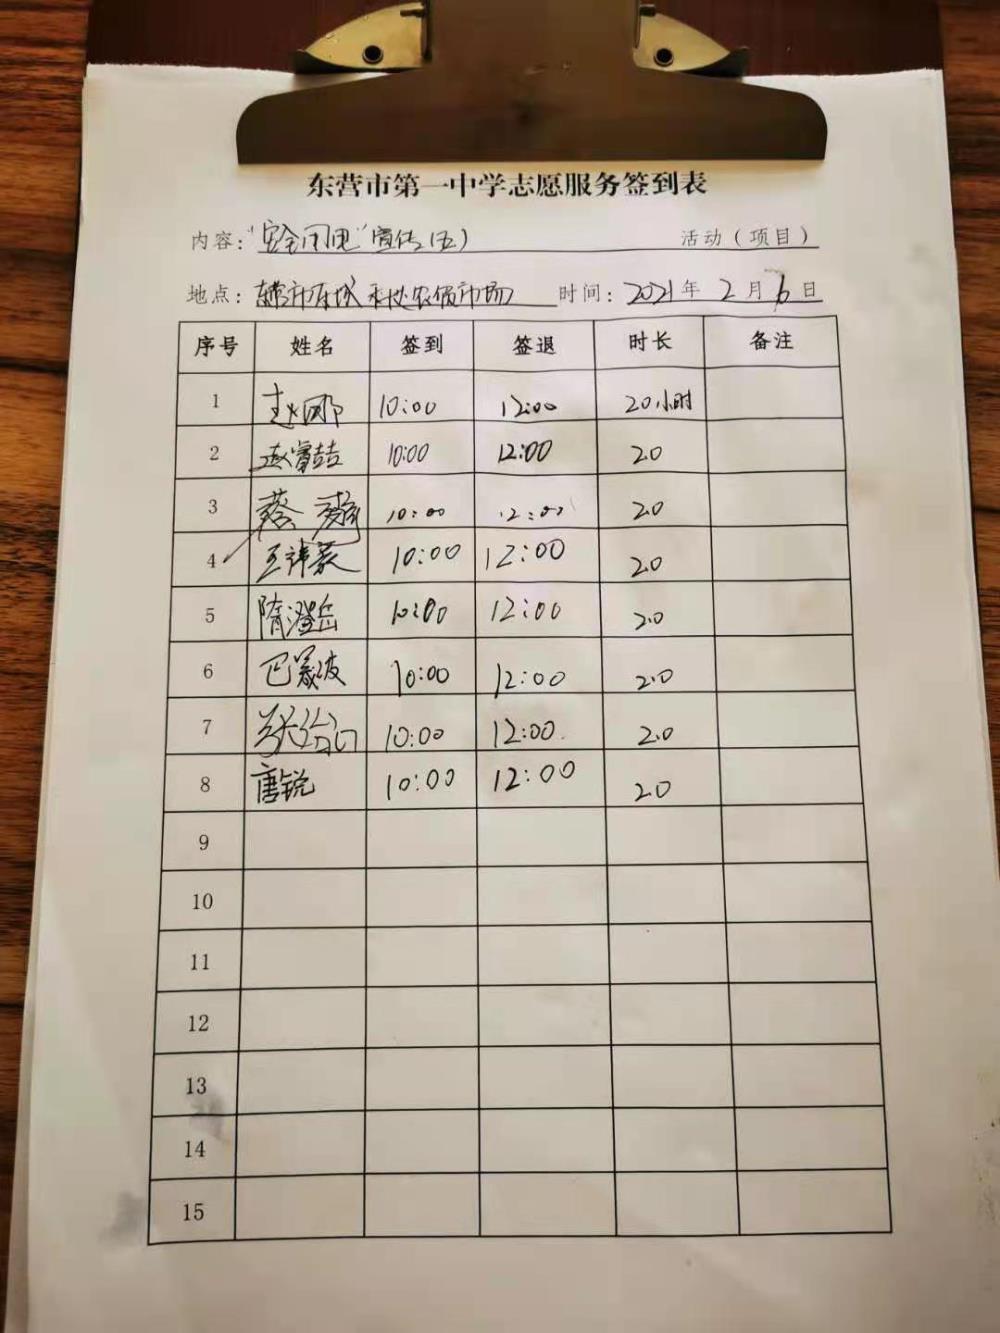 东营市第一中学志愿服务签到表
内容：“安全用电”宣传（五） 活动（项目）
地点： 农贸市场 时间：2021年2月6日
序号 姓名 签到 签退 时长 备注
1 赵娜 10:00 12:00 2.0小时
2 赵睿喆 10:00 12:00 2.0
3 蔡 10:00 12:00 2.0
4 王祎菱 10:00 12:00 2.0
5 隋澄岳 10:00 12:00 2.0
6 巴晟波 10:00 12:00 2.0
7 10:00 12:00 2.0
8 唐锐 10:00 12:00 2.0
9
10
11
12
13
14
15